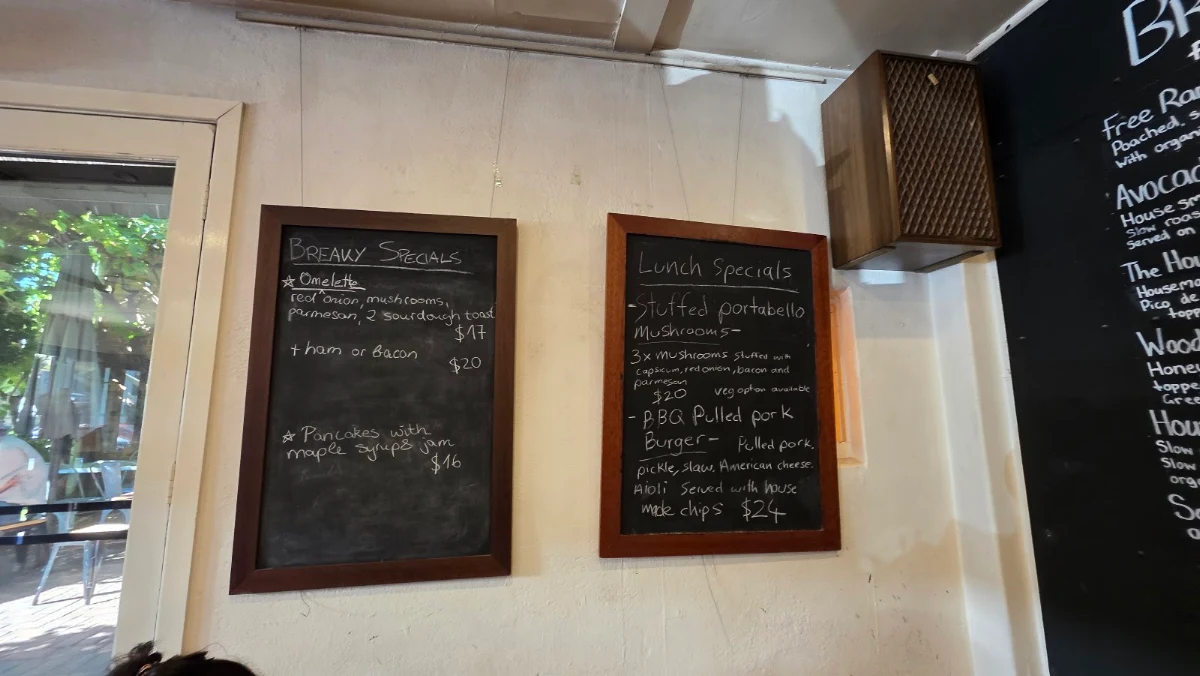 BREAKY SPECIALS
☆ Omelette
red onion, mushrooms,
parmesan, 2 sourdough toast
$17
+ ham or bacon
$20
☆ Pancakes with
maple syrup & jam
$16
Lunch Specials
-Stuffed portabello
Mushrooms-
3x mushrooms stuffed with
capsicum, red onion, bacon and
parmesan
$20 veg option available
- BBQ Pulled pork
Burger- Pulled pork,
pickle, slaw, American cheese.
Aioli Served with house
made chips $24
Free
Poached,
with
House
Slow
served on
The
Pico de
Honey
Slow
Slow